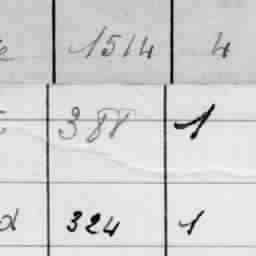 1514 4
388 1
d 324 1